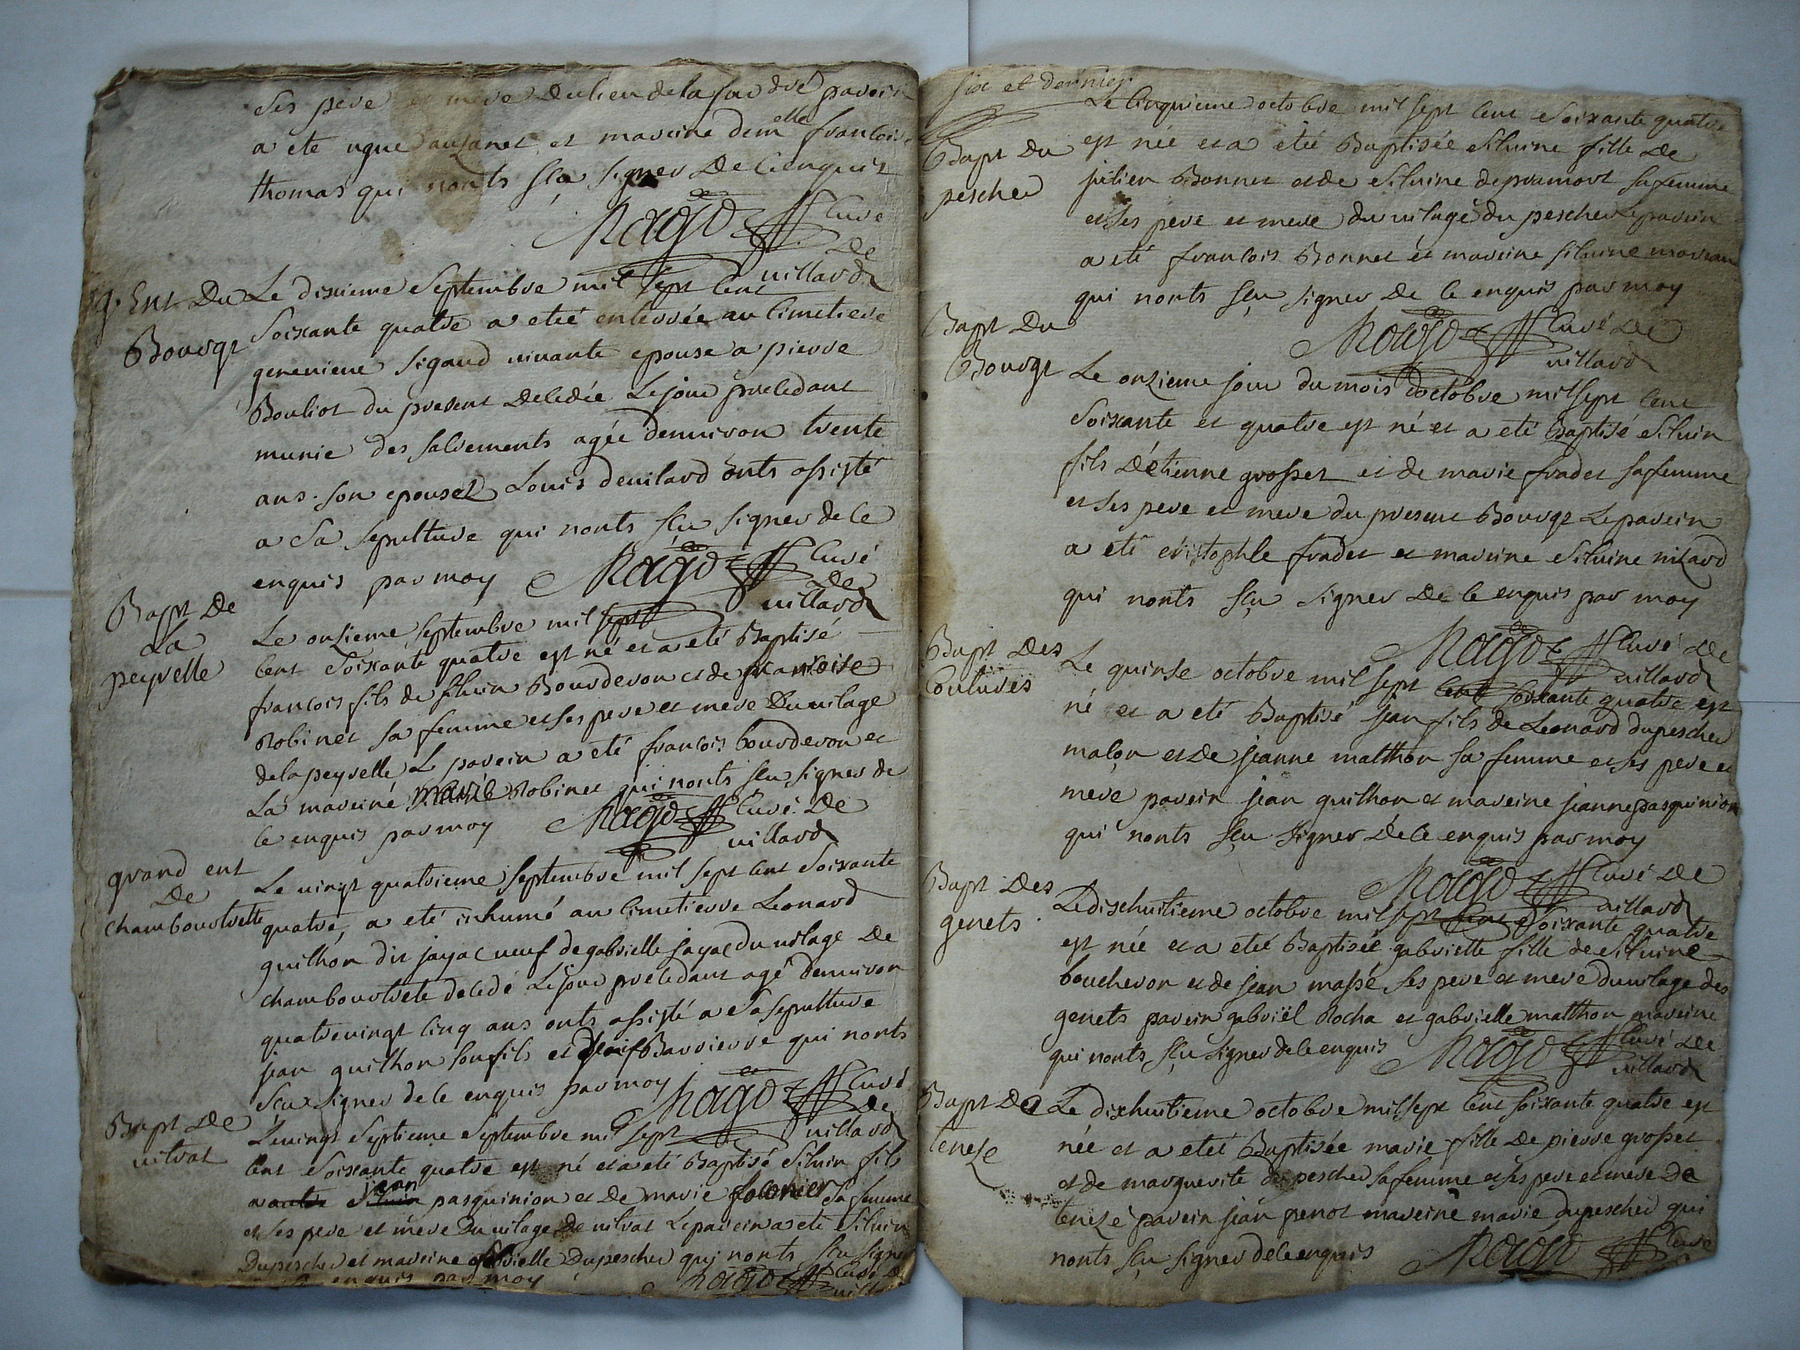 ses pere et mere du lieu de la parein
a ete ugue auzanet et mareine dem^elle francoise
thomas qui nonts sçu signer De Ce enquis
Nago Curé
De
villard
g. Ent Du
Bourgt
Le dixieme Septembre mil sept Cent
Soixante quatre a eté enterrée au Cimetiere
genevieve sigaud vivante epouse a pierre
Bouliot du present decedée Le jour precedant
munie des sacrements agée denviron trente
ans. son epouse Louis devilard onts assisté
a Sa sepulture qui nonts sçu signer de Ce
enquis par moy Nago Curé
De
villard
Bapt De
La
peyrelle
Le onzieme septembre mil sept
Cent Soixante quatre est né et a eté Baptisé
francois fils de siluin Bourderon et de francoise
Robinet sa femme et ses pere et mere Du vilage
de la peyrelle Le parein a eté francois bourderon et
La mareine marie Robinet qui nonts sçu signer de
Ce enquis par moy Nago Curé De
villard
grand ent
De
chamboutvette
Le vingt quatrieme septembre mil sept cent Soixante
quatre, a eté inhumé au Cimetierre Leonard
guilhon dit jayac veuf de gabrielle jayac du vilage De
chamboutvete decedé Le jour precedant agé denviron
quatrevingt Cinq ans onts assisté a Sa sepulture
jean guilhon son fils et Barrierre qui nonts
sçu signer de Ce enquis par moy Nago Curé
De
villard
Bapt De
vilvat
Le vingt Septieme Septembre mil sept
Cent Soixante quatre est né et a eté Baptisé Siluin fils
a jean pasquinion et De marie falonier sa femme
et ses pere et mere Du vilage De vilvat Le parein a eté Siluin
Dupescher et mareine gabrielle Dupescher qui nonts sçu signer
enquis par moy Nago Curé De
villard
six et dernier
Bapt Du
pescher
Le Cinquieme octobre mil sept Cent Soixante quatre
est née et a eté Baptisée Siluine fille De
julien Bonnet et de Siluine depramort sa femme
et Ses pere et mere du vilage du pescher Le parein
a eté francois Bonnet et mareine siluine moreau
qui nonts sçu signer De Ce enquis par moy
Nago Curé De
villard
Bapt Du
Bourgt
Le onzieme jour du mois doctobre mil sept Cent
Soixante et quatre est né et a eté Baptisé Siluin
fils D'etienne grosset et de marie frader sa femme
et Ses pere et mere du present Bourgt Le parein
a eté cristophle frader et mareine Siluine nizard
qui nonts sçu signer De Ce enquis par moy
Nago Curé De
villard
Bapt Des
Coutures
Le quinse octobre mil sept Cent soixante quatre est
né et a eté Baptisé jean fils de Leonard dupescher
maçon et De jeanne matthon sa femme et ses pere et
mere parein jean guilhon et mareine jeanne pasquinion
qui nonts sçu signer De Ce enquis par moy
Nago Curé De
villard
Bapt Des
genets.
Le dixhuitieme octobre mil sept Cent Soixante quatre
est née et a eté Baptisée gabrielle fille de siluine
boucheron et de jean massé Ses pere et mere du vilage des
genets parein gabriël Rocha et gabrielle matthon mareine
qui nonts sçu signer de Ce enquis Nago Curé De
villard
Bapt De
teneze
Le dixhuitieme octobre mil sept Cent soixante quatre est
née et a eté Baptisée marie fille De pierre grosset
et de marguerite dupescher sa femme et ses pere et mere De
tenezé parein jean penot mareine marie dupescher qui
nonts sçu signer de Ce enquis Nago Curé